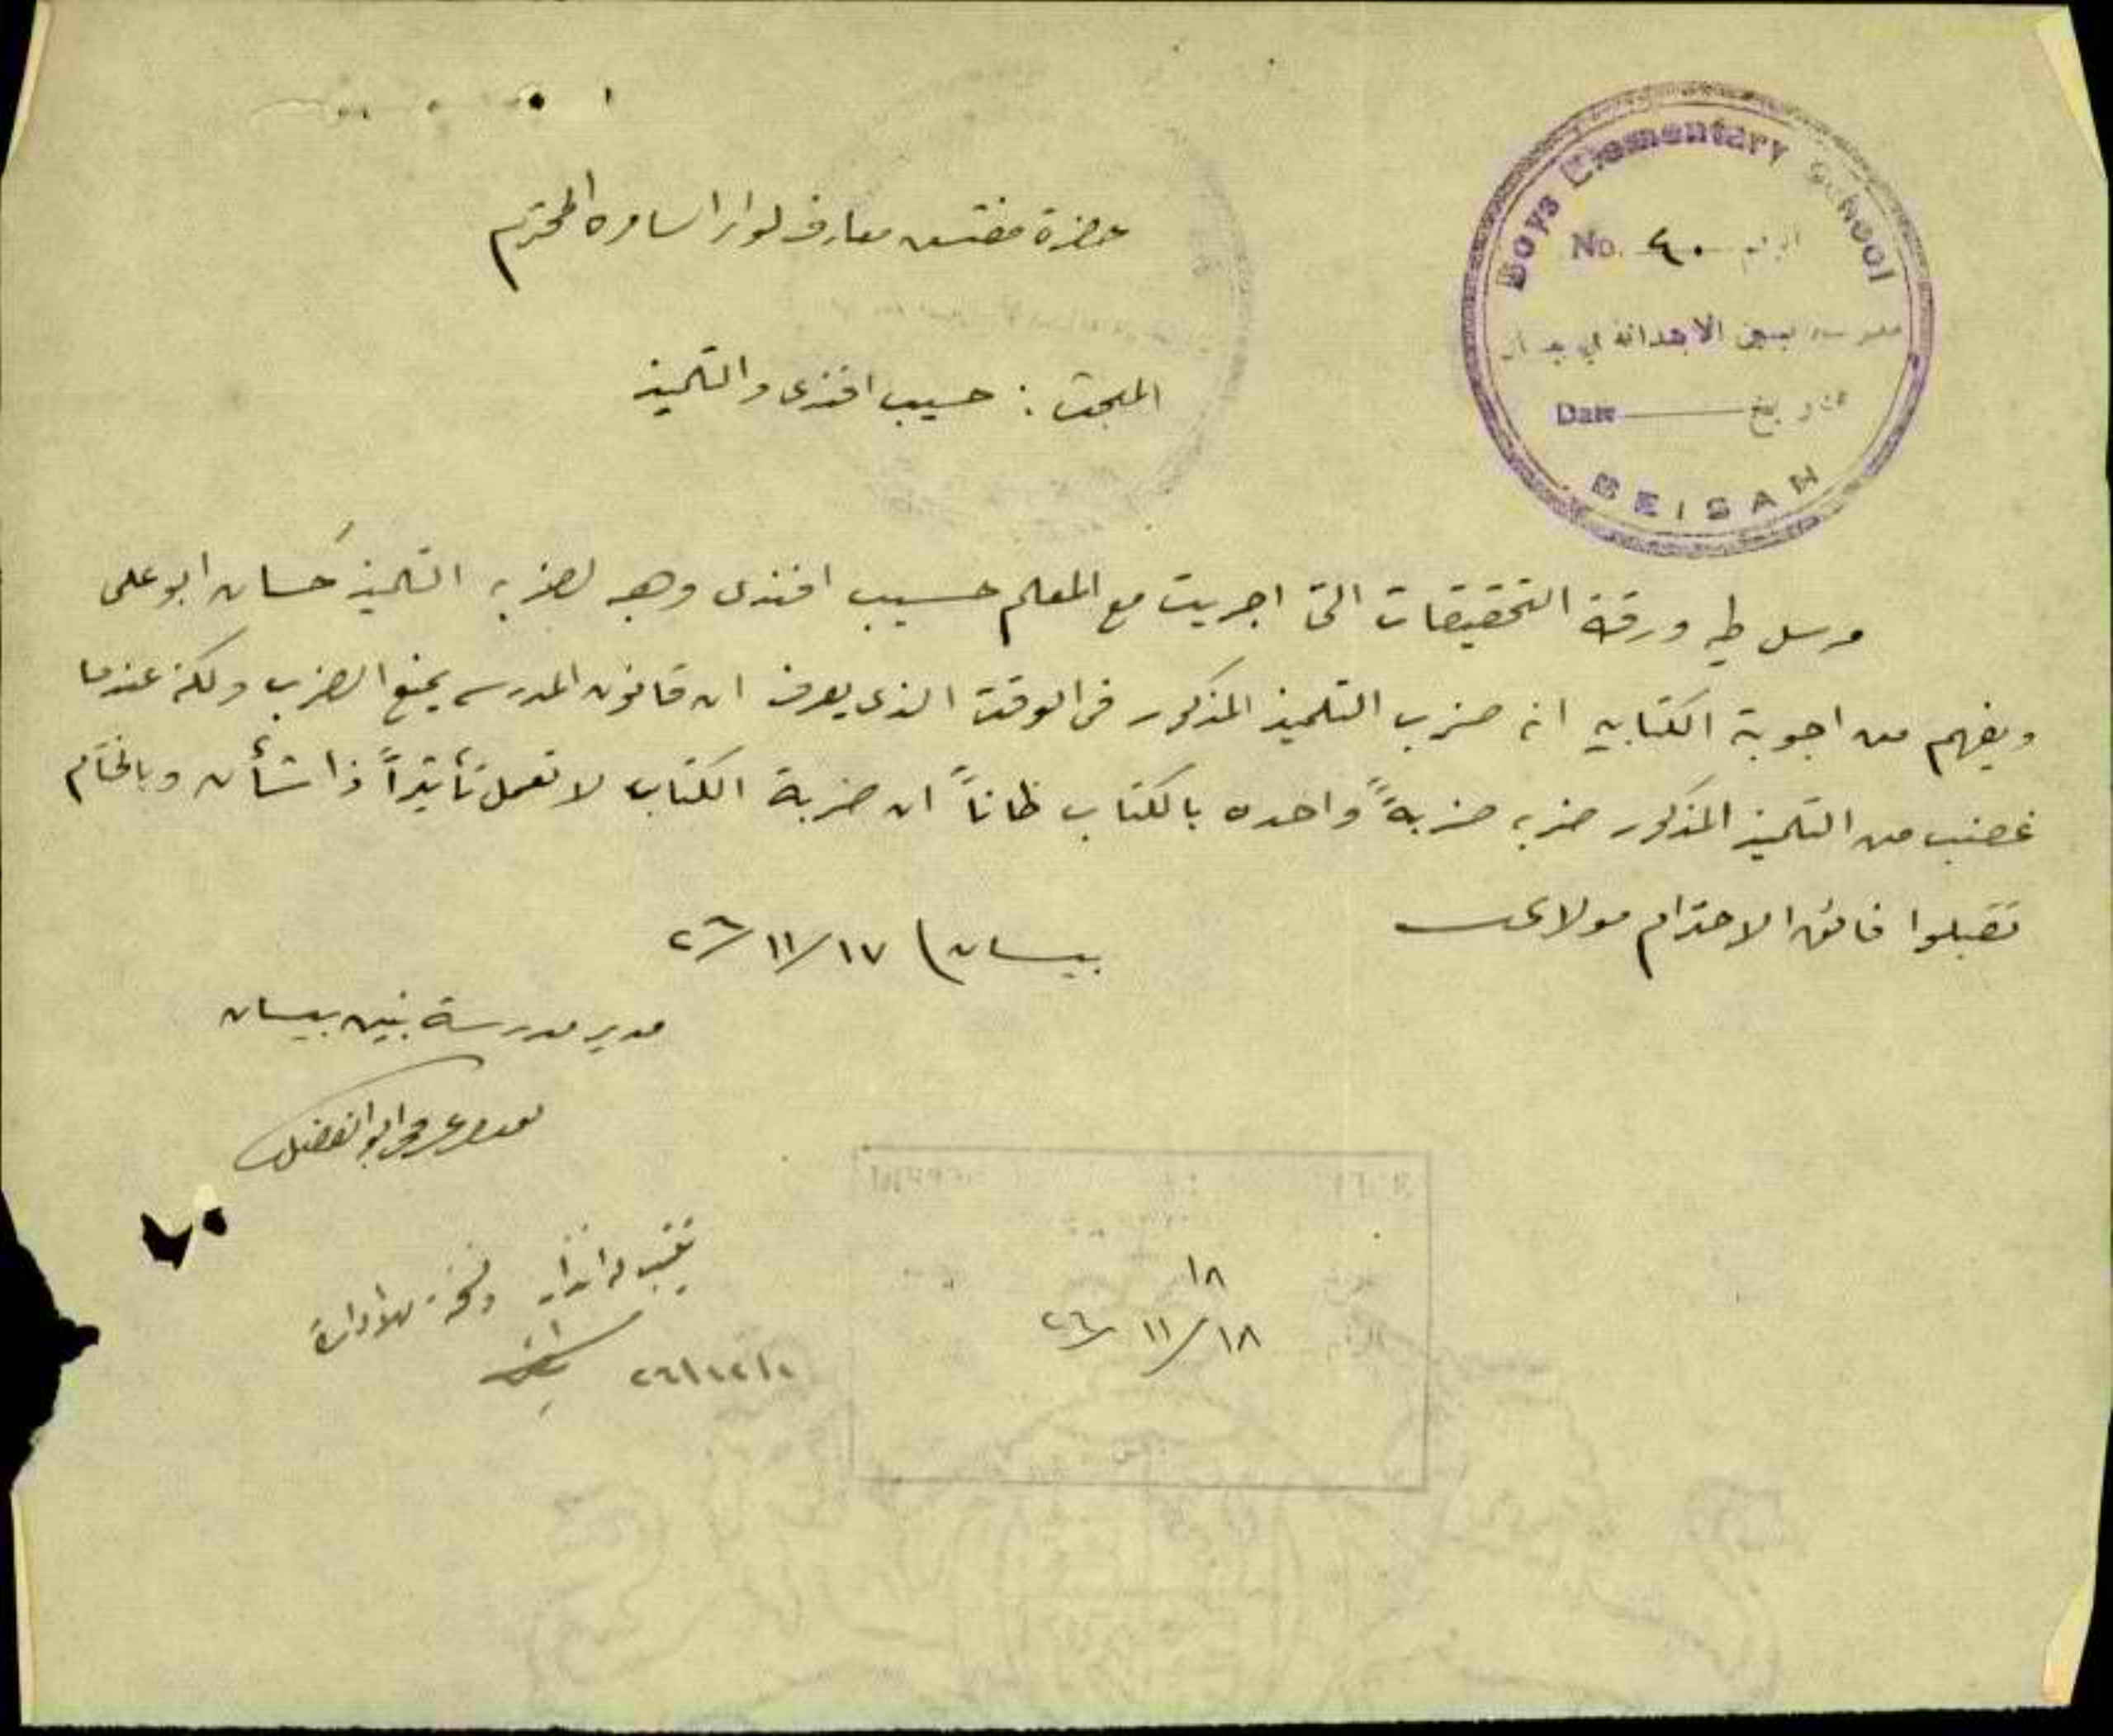 Boys Elementary School
No. ٤٠ الرقم
مدرسة البنين الابتدائية في بيسان
Date تاريخ
BEISAN
حضرة مفتش معارف لواء السامره المحترم
المبحث : حسيب افندي والتلميذ
مرسل طيه ورقة التحقيقات التي اجريت مع المعلم حسيب افندي وهبه لضربه التلميذ حسان ابو علي
ويفهم من اجوبته الكتابيه انه ضرب التلميذ المذكور في الوقت الذي يعرف ان قانون المدرسه يمنع الضرب ولكنه عندما
غضب من التلميذ المذكور ضربه ضربةً واحده بالكتاب ظاناً ان ضربة الكتاب لا تعمل تأثيراً ذا شأن وبالختام
تقبلوا فائق الاحترام مولاي
بيسان ١٧/١١/٢٦
مدير مدرسة بنين بيسان
ابو الفضل
١٨
١٨/١١/٢٦
يكتب له انذار ونسخة للادارة